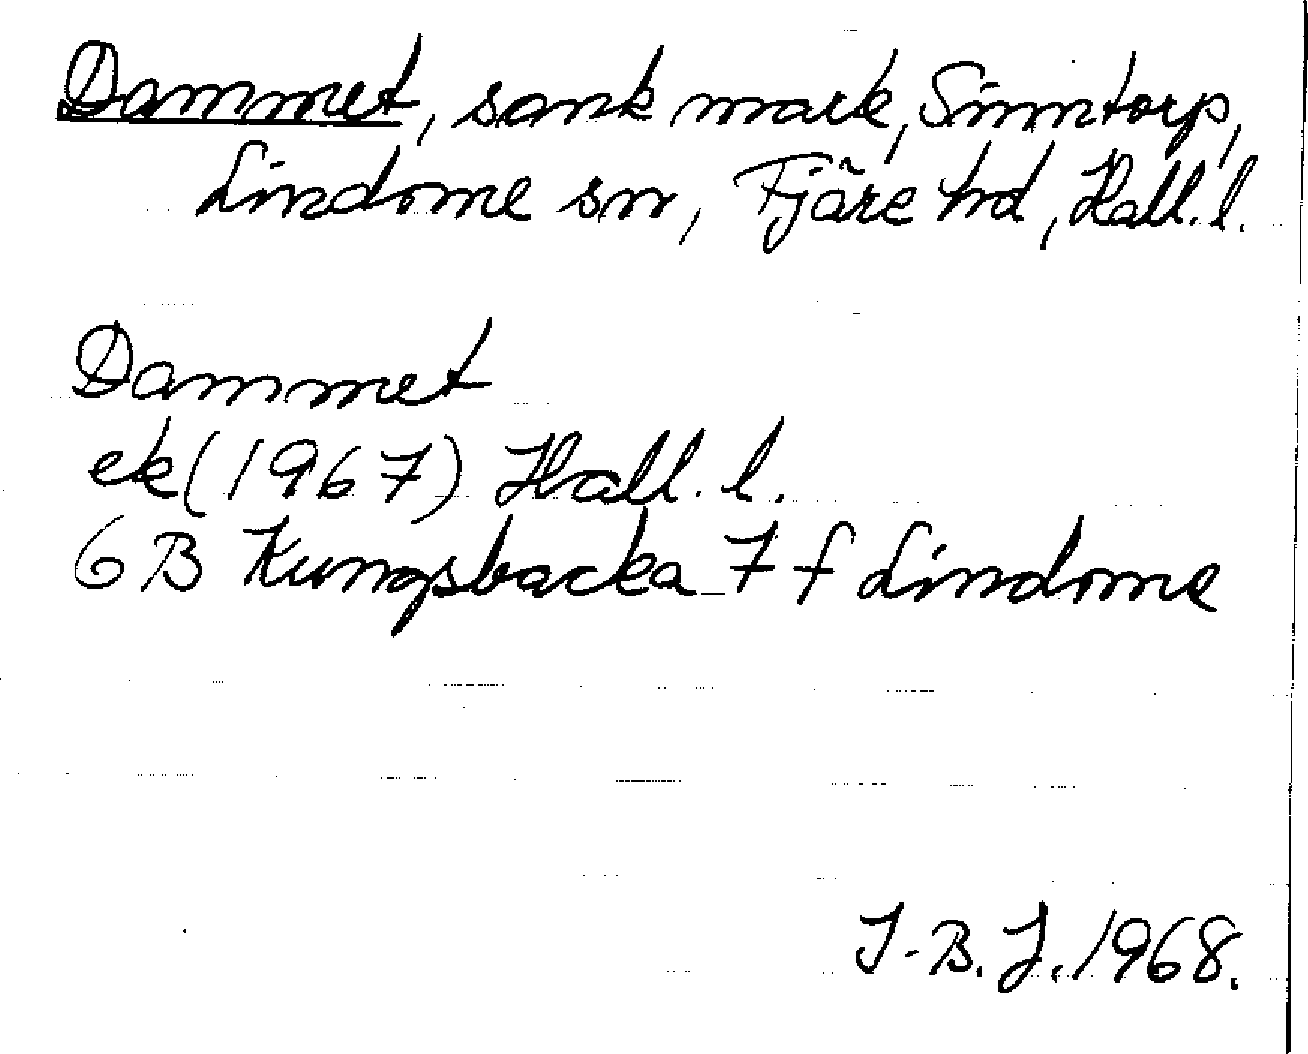 Dammet, sank mark, Sinntorp,
Lindome sn, Fjäre hd, Hall. l.
Dammet
ek (1967) Hall. l.
6 B Kungsbacka 7 f Lindome
I-B. J. 1968.